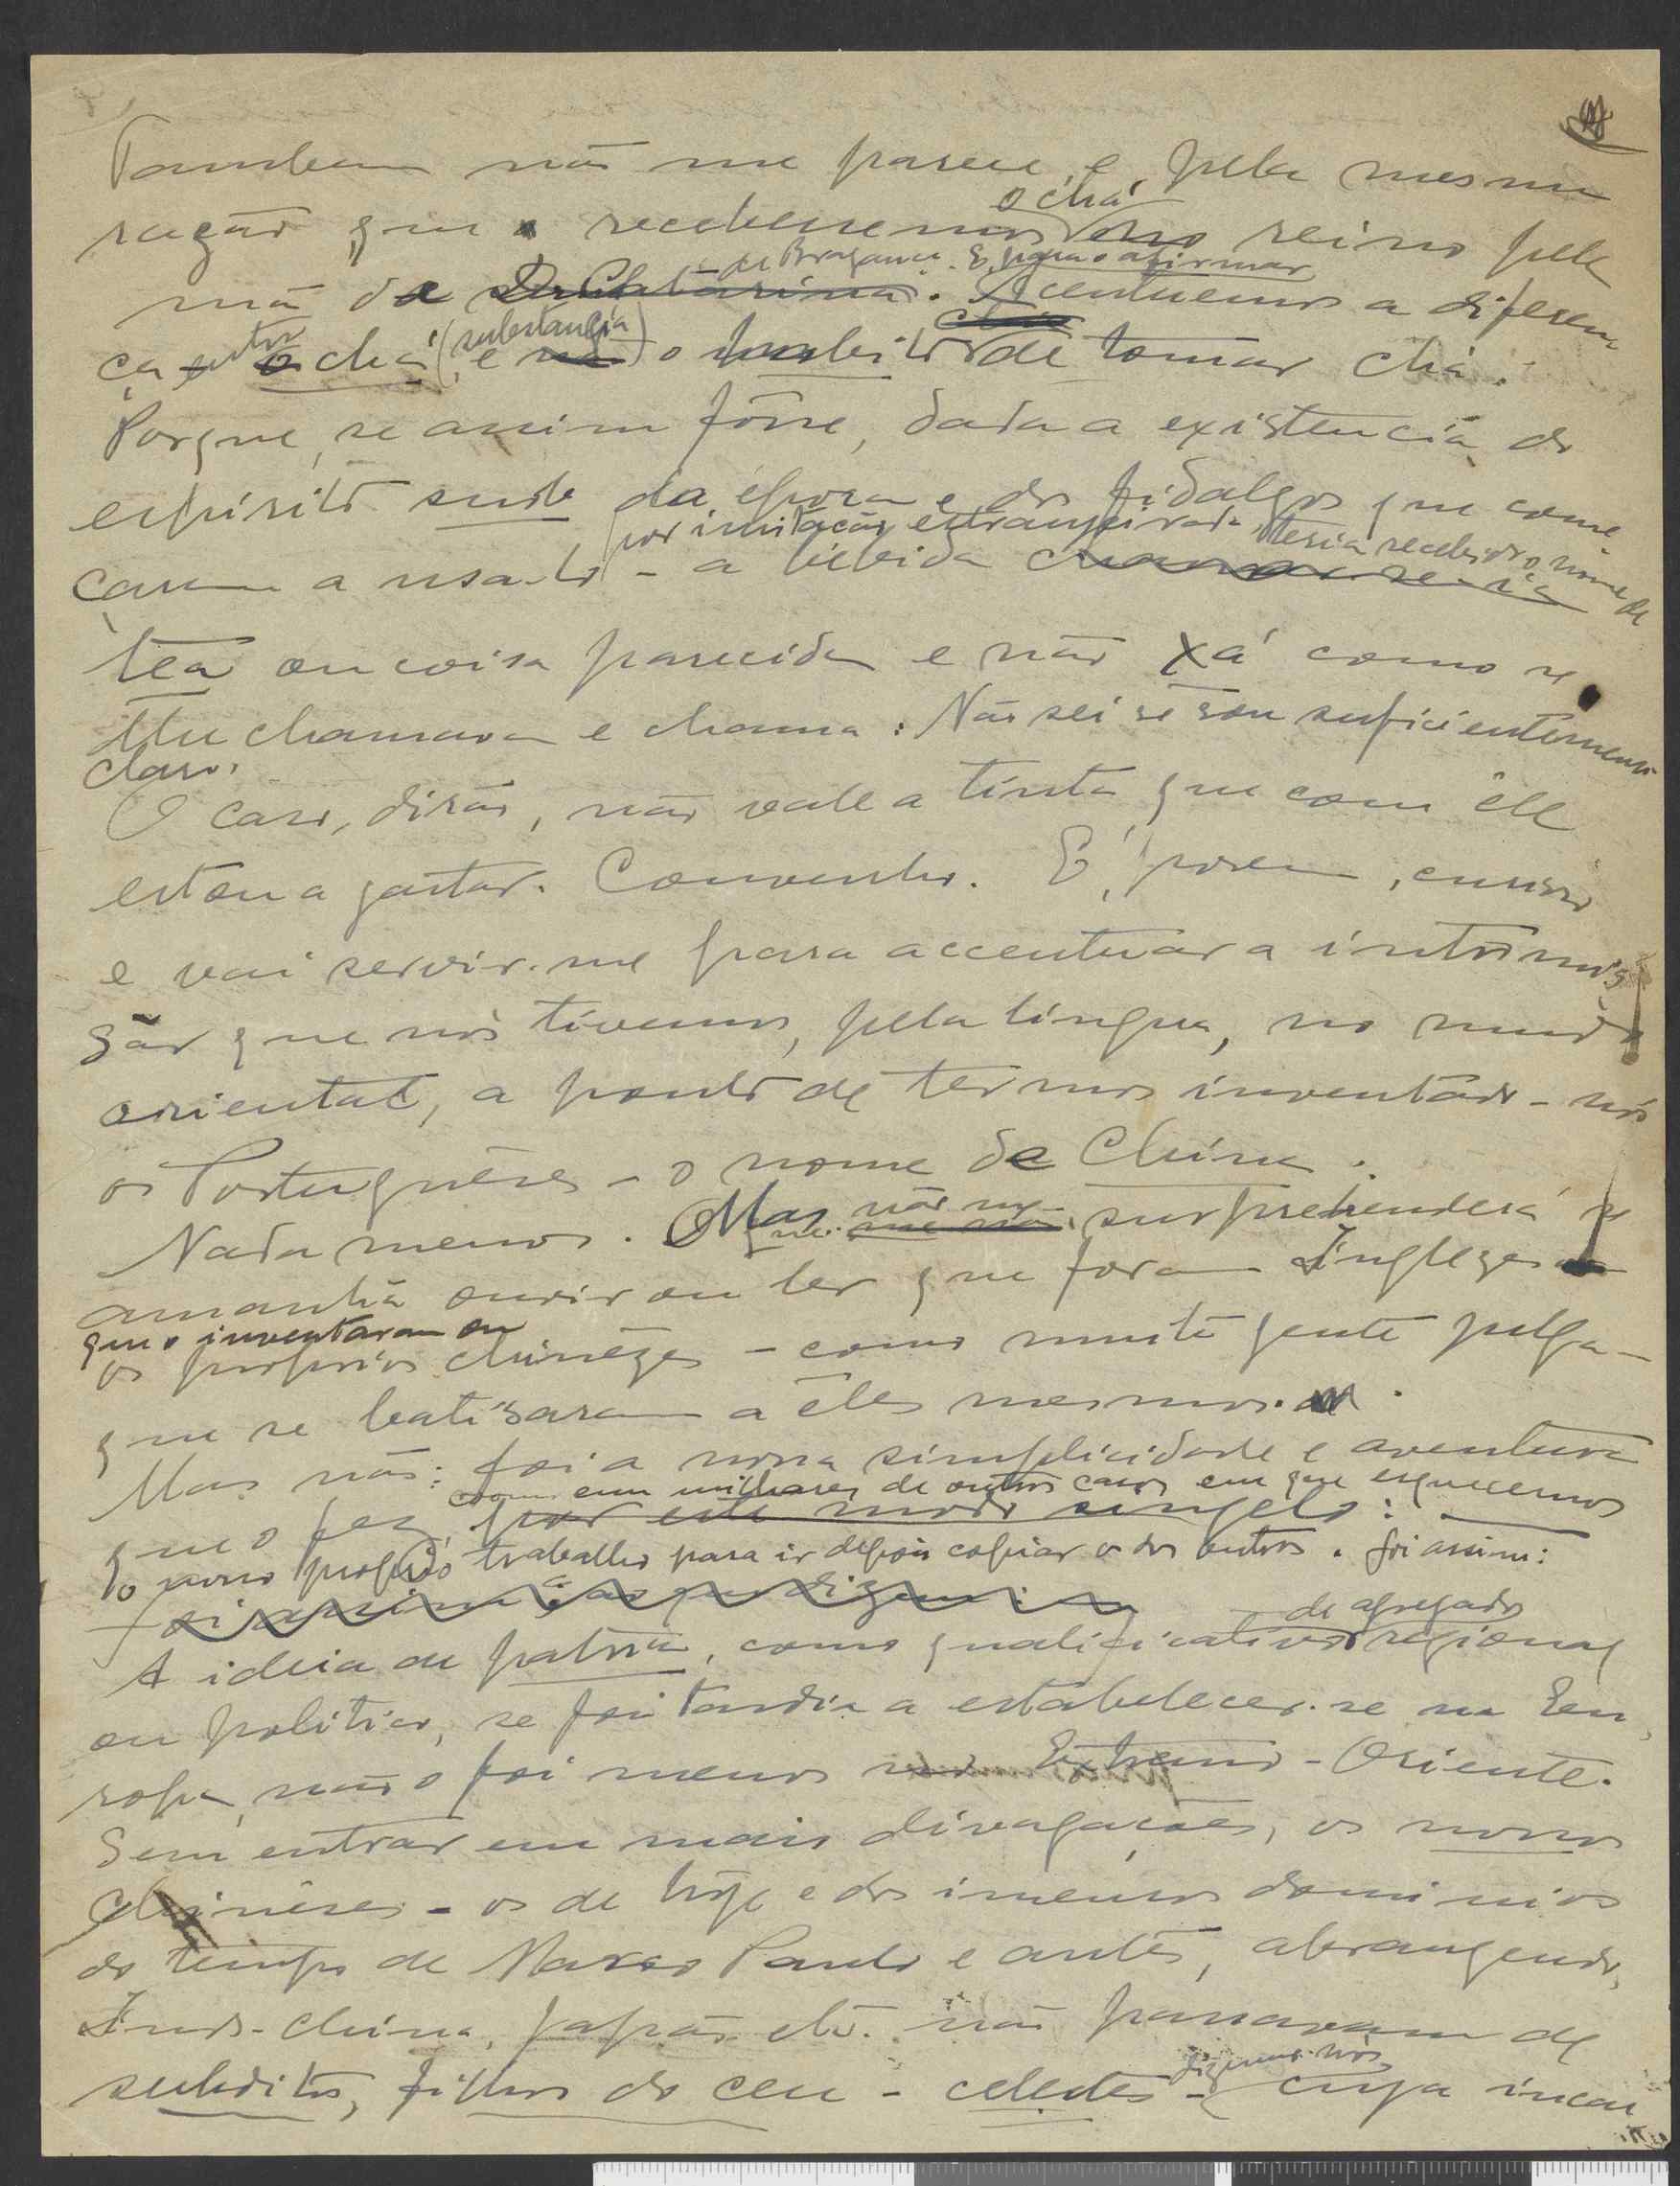 Tambem não me parece, e pela mesma
razão que recebessemos o chá no reino pela
mão de de Bragança. E para o afirmar
Acentuemos a diferen
ça entre o chá (substancia) e o habito de tomar chá.
Porque, se assim fôsse, dada a existencia do
espirito da época e dos fidalgos que come
çaram a usa-lo, por imitação estrangeirada,
- a bebida teria recebido o nome de
tea ou coisa parecida e não Xá como se
lhe chamava e chama. Não sei se sou suficientemente
claro.
O caso, dirão, não vale a tinta que com êle
estou a gastar. Convenho. É, porem, curioso
e vai servir-me para accentuar a intromis
são que nós tivemos, pela lingua, no mundo
oriental, a ponto de termos inventado - nós
os Portuguêses - o nome de China.
Nada menos. Mas não me surprehenderá se
amanhã ouvir ou ler que foram Inglezes
que o inventaram ou
os proprios chinêzes - como muita gente julga -
que se batisaram a êles mesmos.
Mas não: foi a nossa simplicidade e aventura
que o fez, como em milhares de outros casos em que esquecemos
por este modo singelo:
o nosso proprio trabalho para ir depois copiar o dos outros. Foi assim:
A ideia de patria, como qualificativo de agregado regional
ou politico, se foi tardia a estabelecer-se na Eu
ropa, não o foi menos no Extremo-Oriente.
Sem entrar em mais divagações, os nossos
chinêses - os de hoje e dos imensos dominios
do tempo de Marco Paulo e antes, abrangendo,
Indo-china, Japão etc. não passavam de
subditos, filhos do ceu - celestes - dizemos nós, cuja incar